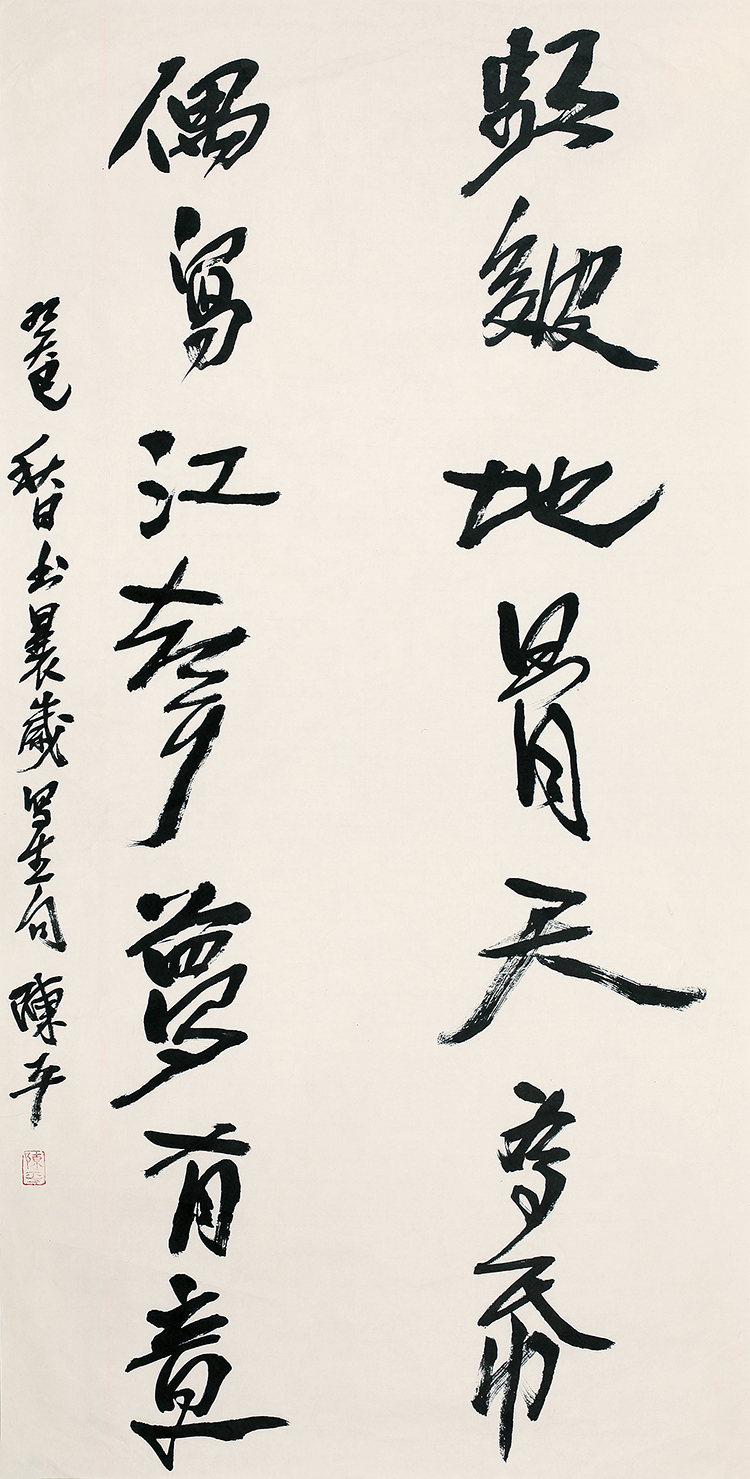 頻皴地骨天為帋
偶寫江夢有意
癸巳秋日書曩歲寫生句 陳平
陳平